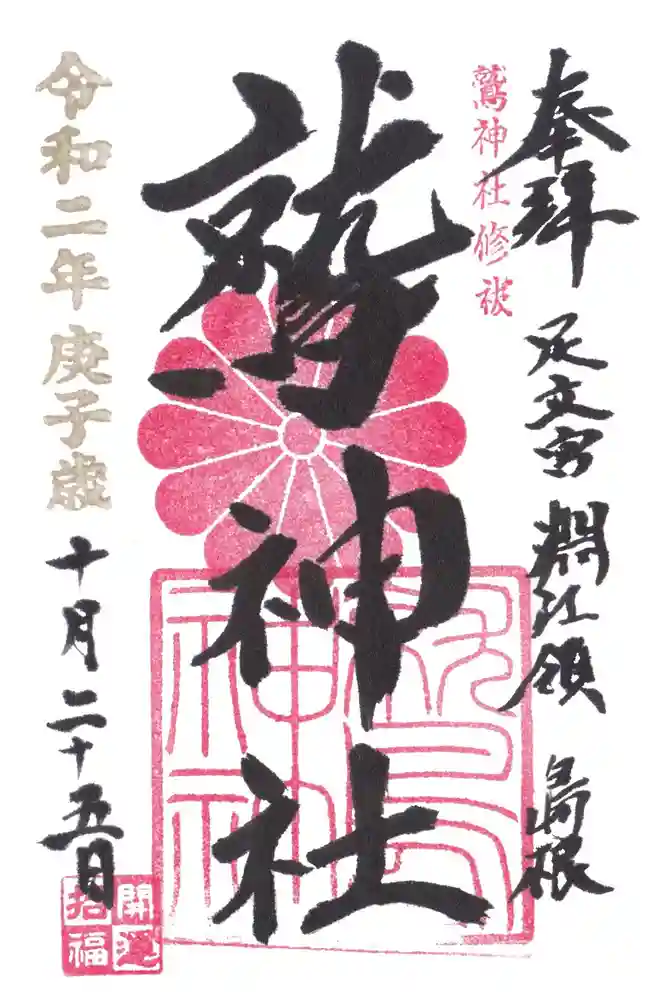 奉拝 足立 淵江領 島根
鷲神社修祓
鷲神社
令和二年庚子歳 十月二十五日
開運
招福